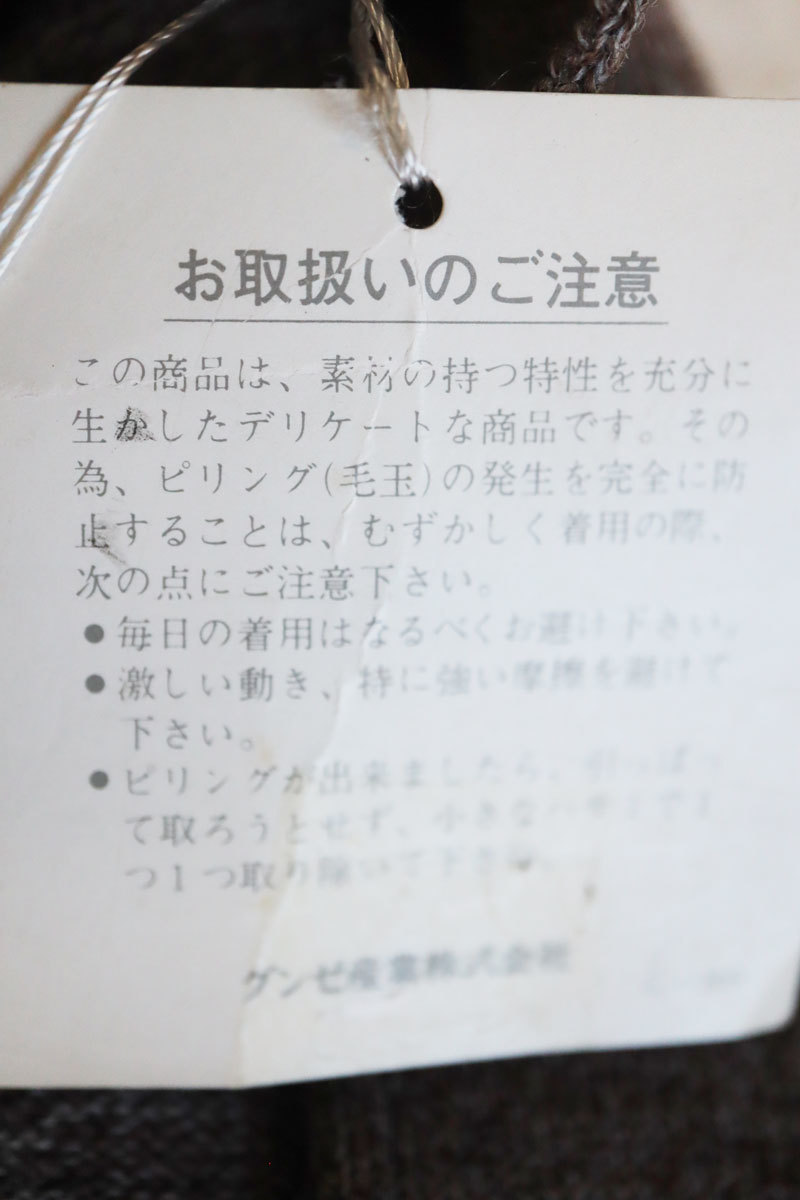 お取扱いのご注意
この商品は、素材の持つ特性を充分に
生かしたデリケートな商品です。その
為、ピリング(毛玉)の発生を完全に防
止することは、むずかしく着用の際、
次の点にご注意下さい。
●毎日の着用はなるべくお避け下さい。
●激しい動き、持に強い摩擦を避けて
下さい。
●ピリングが出来ましたら、引っぱっ
て取ろうとせず、小さなハサミで1
つ1つ取り除いて下さい。
グンゼ産業株式会社